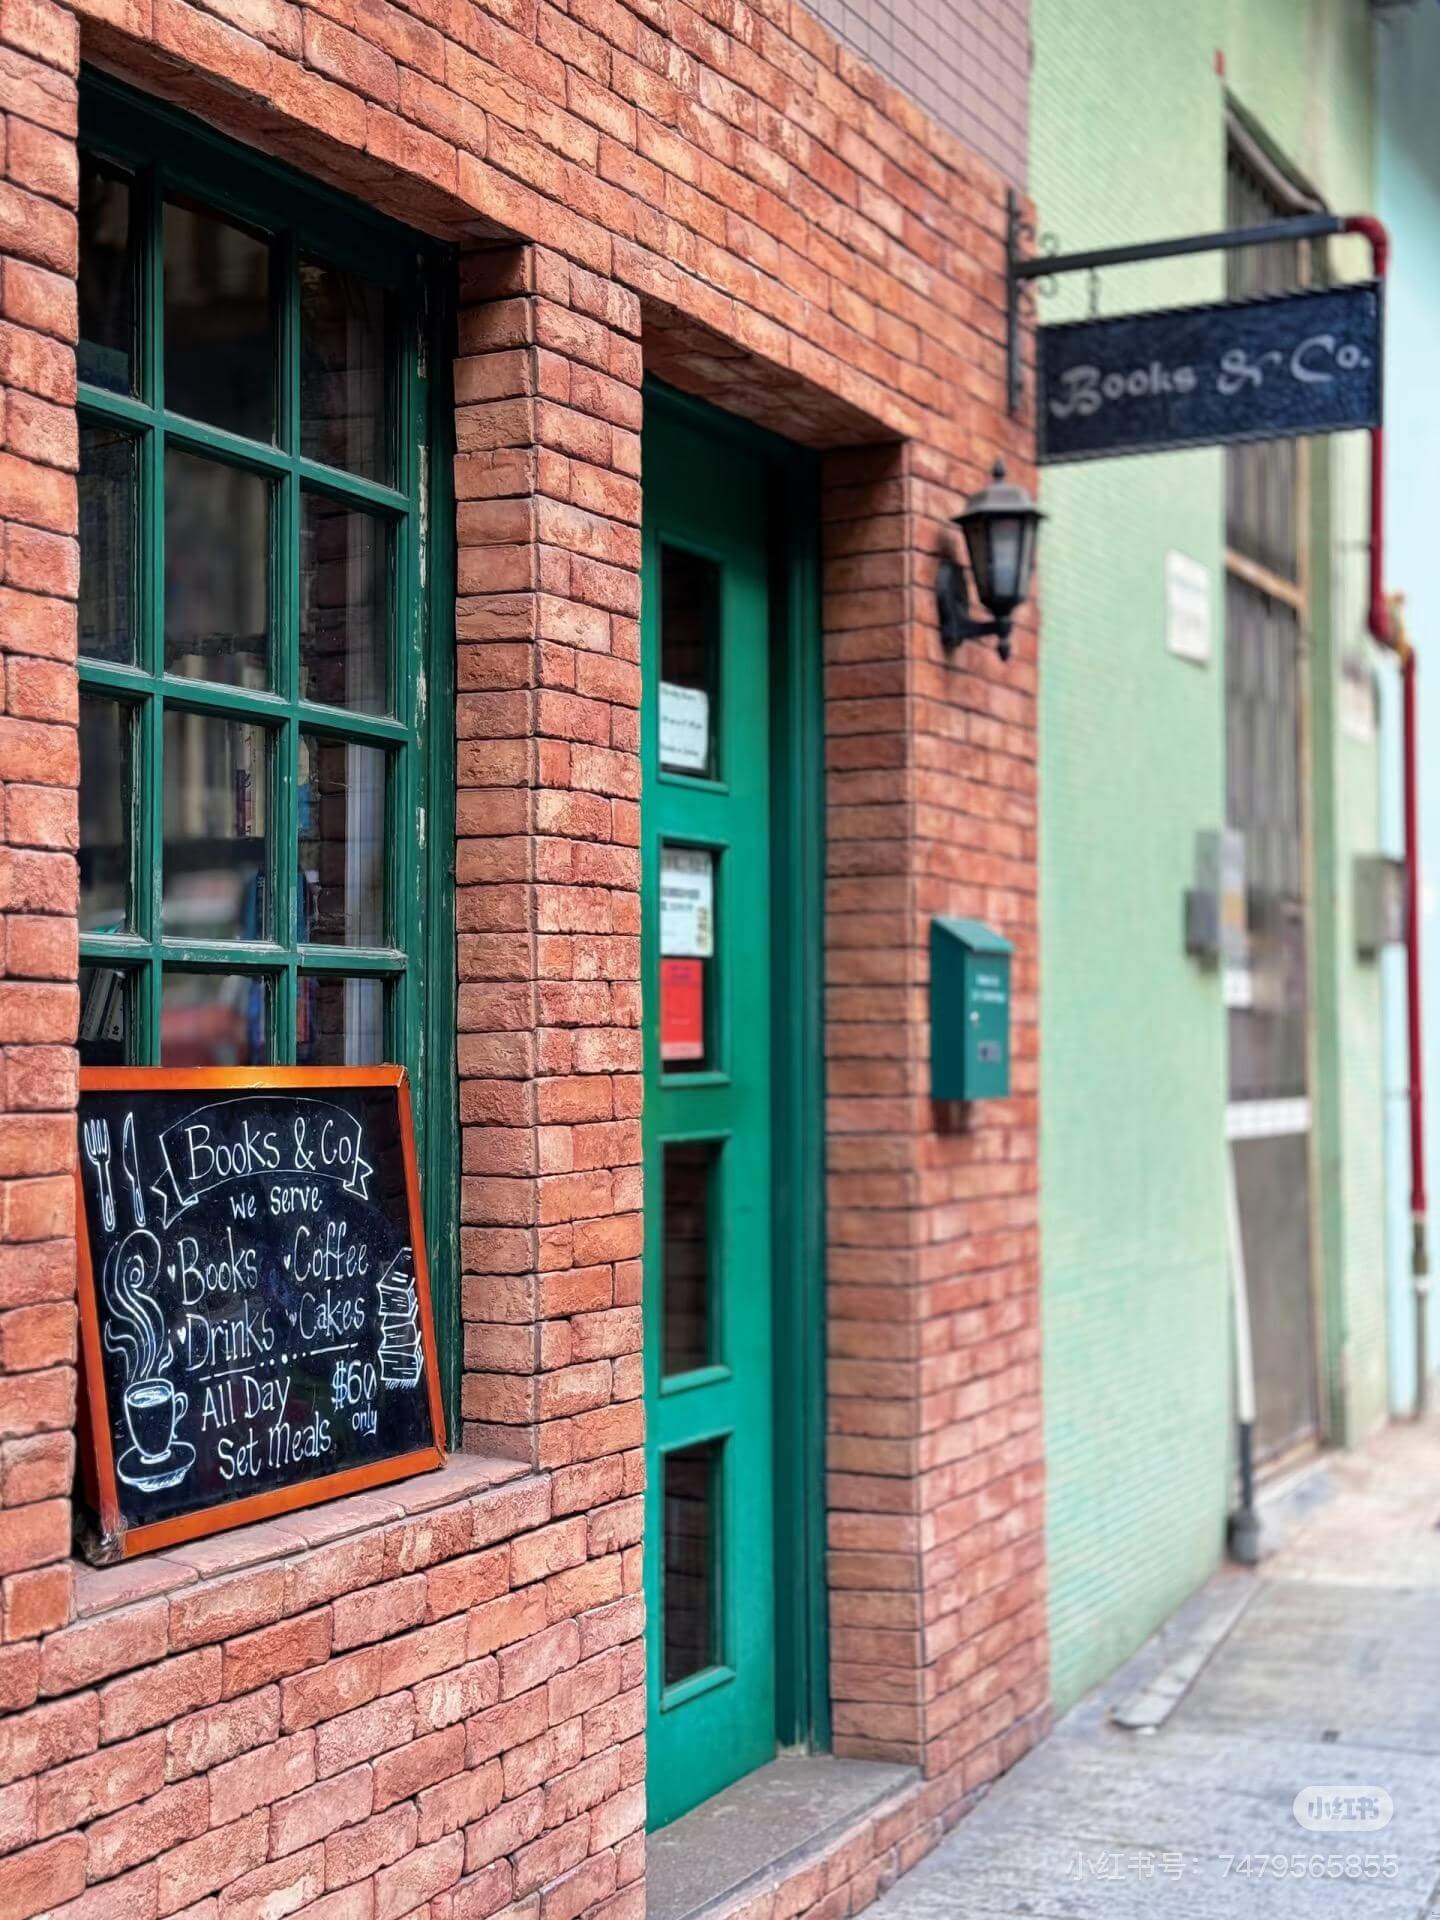 Books & Co.
Books & Co.
We Serve
Books Coffee
Drinks Cakes
All Day $60
Set Meals only
小红书
小红书号：7479565855